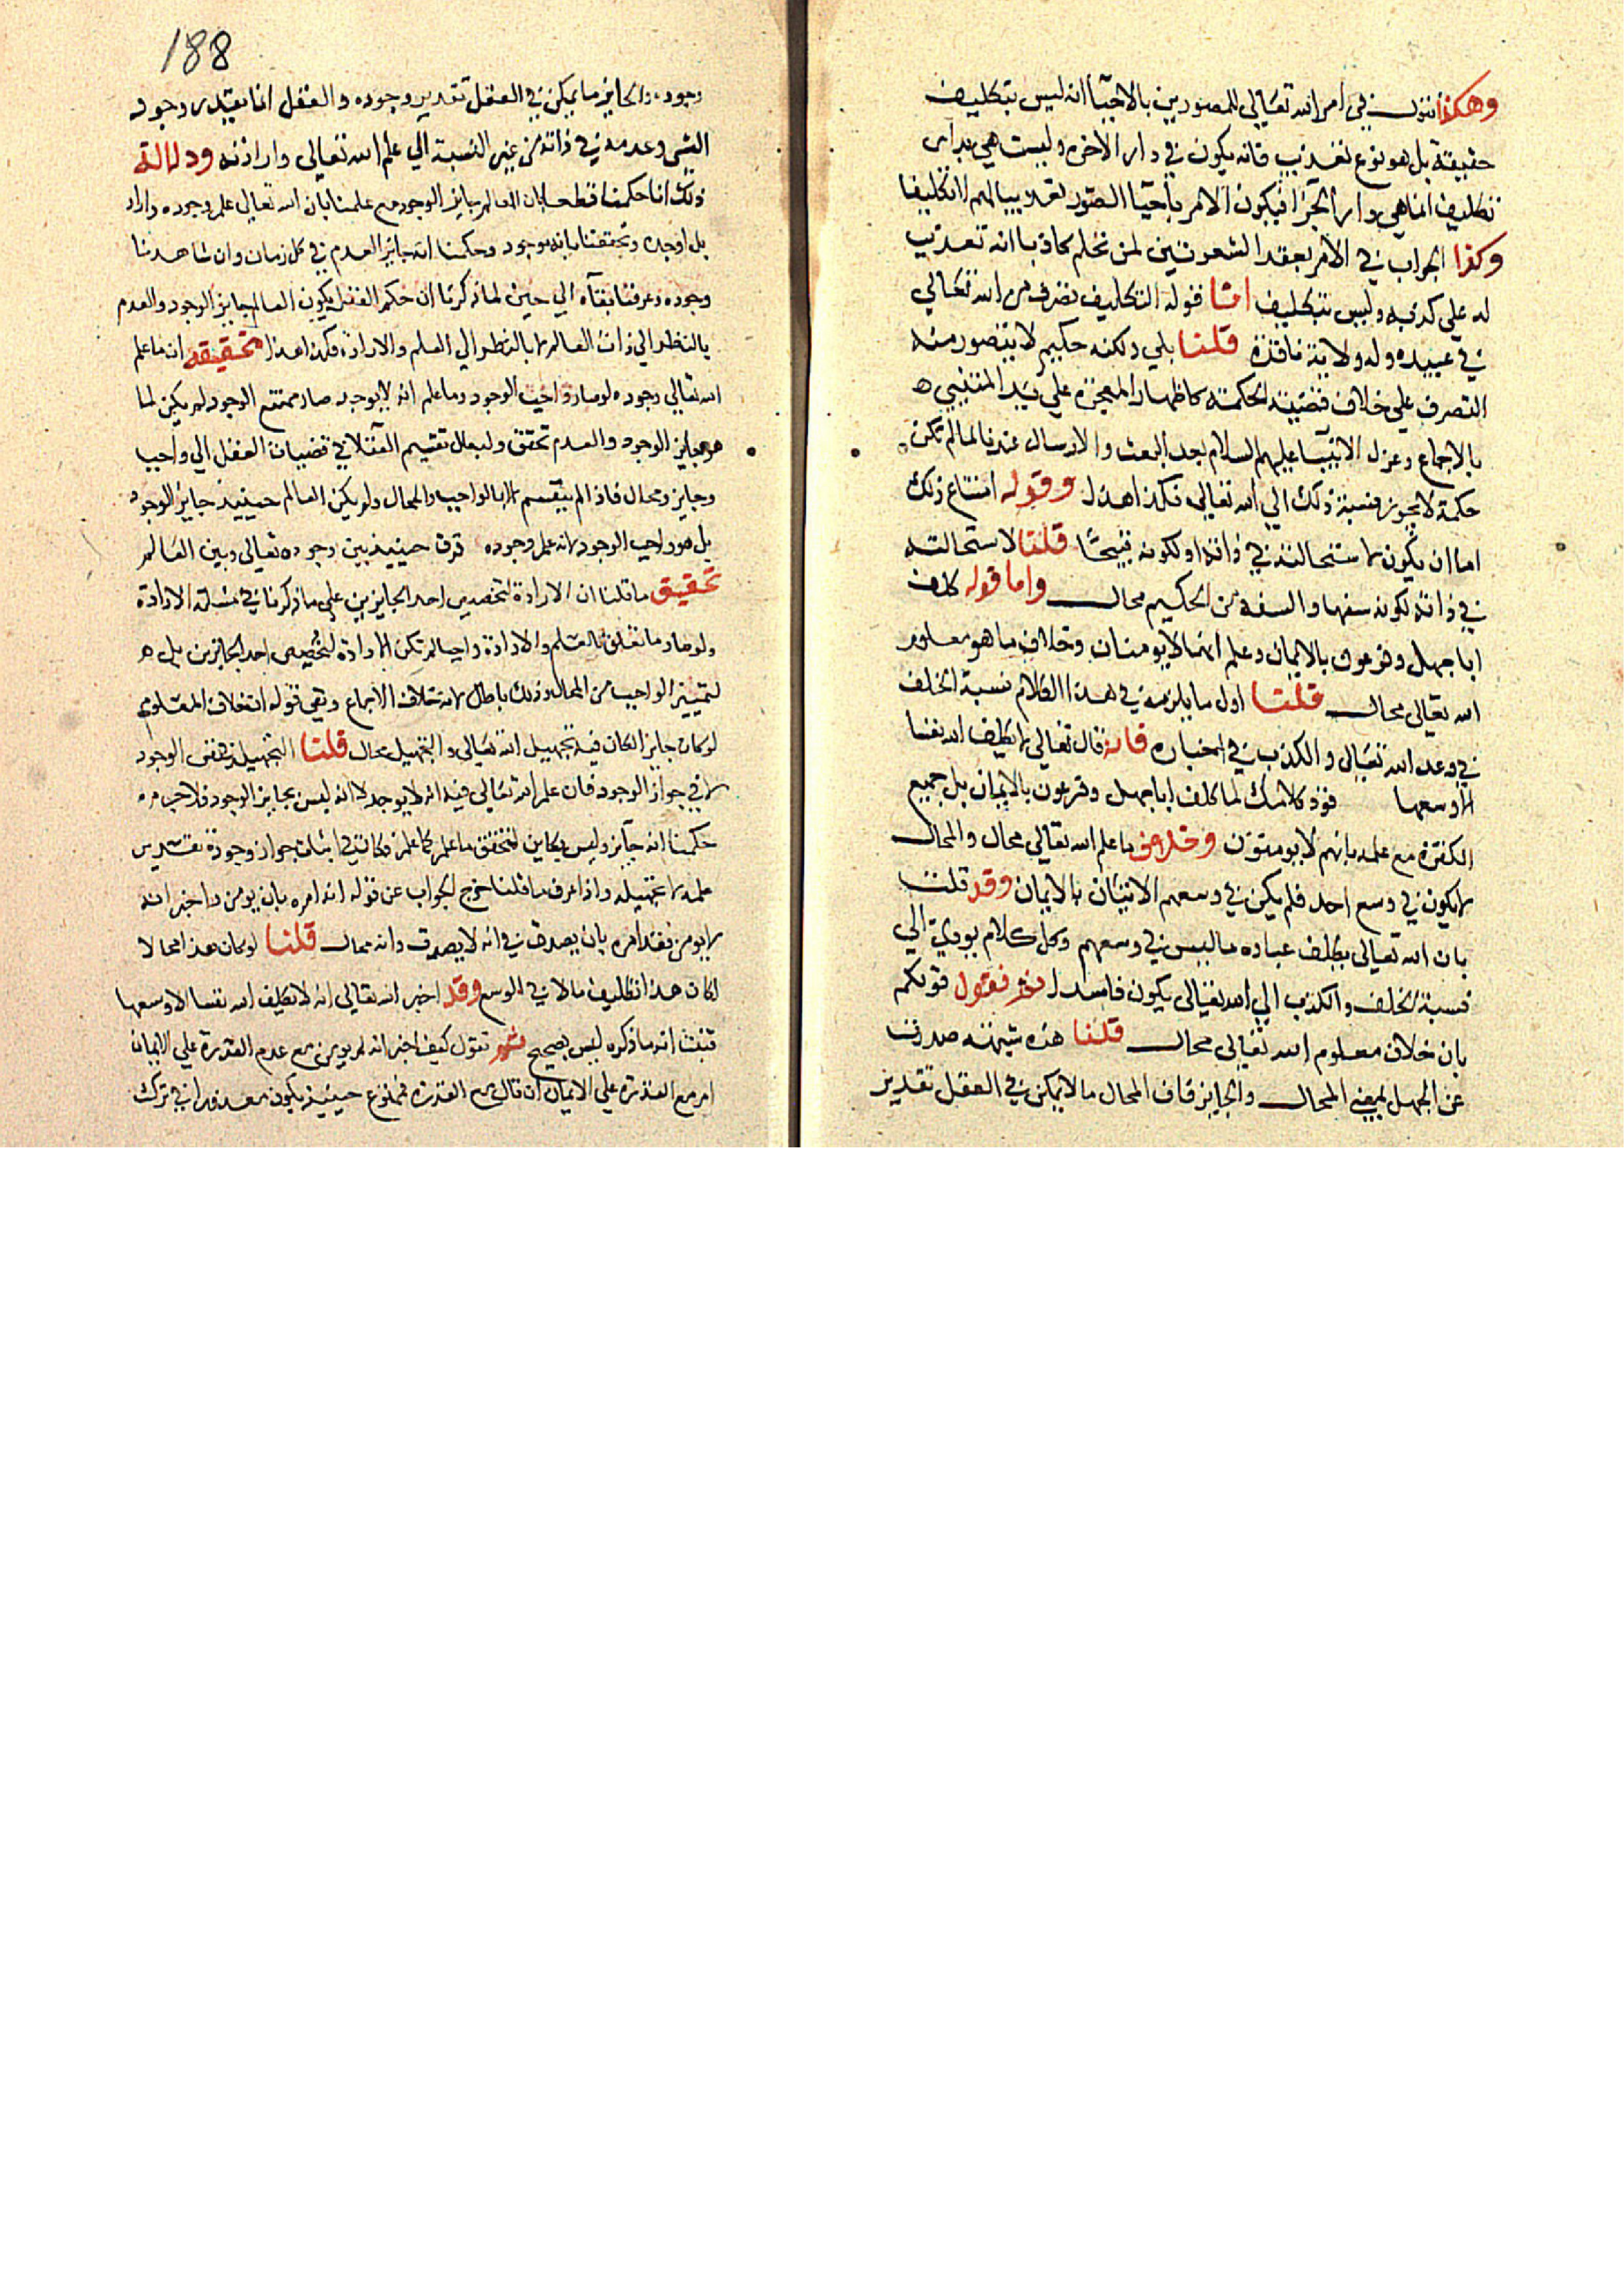 وهكذا نقول في امر الله تعالى للمصورين بالاحيا انه ليس بتكليف
حقيقة بل هو نوع تعذيب فانه يكون في دار الاخرة وليست هي بدار
تكليف انما هي دار الجزا فيكون الامر باحيا الصور تعذيبا لهم لا تكليفا
وكذا الجواب في الامر بعقد الشعرتين لمن تحلم كاذبا انه تعذيب
له على كذبه وليس بتكليف اما قوله التكليف تصرف من الله تعالى
في عبيده وله ولاية نافذة قلنا بلى ولكنه حكيم لا يتصور منه
التصرف على خلاف قضية الحكمة كاظهار المعجزة على يد المتنبي
بالاجماع وعزل الانبيا عليهم السلام بعد البعث والارسال عندنا لما لم تكن
حكمة لا يجوز نسبة ذلك الى الله تعالى فكذا هذا وقوله امتناع ذلك
اما ان يكون لاستحالته في ذاته او لكونه قبيحا قلنا لاستحالته
في ذاته لكونه سفها والسفه من الحكيم محال واما قوله كلف
ابا جهل وفرعون بالايمان وعلم انهما لا يومنان وخلاف ما هو معلوم
الله تعالى محال قلنا اول ما يلزمه في هذا الكلام نسبة الخلف
في وعد الله تعالى والكذب في اخباره فانه قال تعالى لا يكلف الله نفسا
الا وسعها فود كلامك لما كلف ابا جهل وفرعون بالايمان بل جميع
الكفرة مع علمه بانهم لا يومنون وخلاف ما علم الله تعالى محال والمحال
لا يكون في وسع احد فلم يكن في وسعهم الاتيان بالايمان وقد قلت
بان الله تعالى يكلف عباده ما ليس في وسعهم وكل كلام يودي الى
نسبة الخلف والكذب الى الله تعالى يكون فاسدا ثم نقول قولكم
بان خلاف معلوم الله تعالى محال قلنا هذه شبهة صدرت
عن الجهل بمعنى المحال والجايز فان المحال ما لا يمكن في العقل تقدير
188
وجوده والجايز ما يمكن في العقل تقدير وجوده والعقل انما يقتدر وجود
الشي وعدمه في ذاته من غير النسبة الى علم الله تعالى وارادته ودلالة
ذلك انا حكمنا قطعا بان العالم جايز الوجود مع علمنا بان الله تعالى علم وجوده واراد
بل اوجده وتحققنا بانه موجود وحكمنا انه جايز العدم في كل زمان وان شاهدنا
وجوده وعرفنا بقآه الى حين لما ذكرنا ان حكم العقل بكون العالم جايز الوجود والعدم
بالنظر الى ذات العالم لا بالنظر الى العلم والارادة فكذا هذا تحقيقه ان ما علم
الله تعالى وجوده لو صار واجب الوجود وما علم انه لا يوجد صار ممتنع الوجود لم يكن لما
هو جايز الوجود والعدم تحقق ولبطل تقسيم العقلا في قضيات العقل الى واجب
وجايز ومحال فاذا لم ينقسم الا بالواجب والمحال ولم يكن العالم حينيذ جايز الوجود
بل هو واجب الوجود لانه علم وجوده فرق حينيذ بين وجوده تعالى وبين العالم
تحقيق ما قلنا ان الارادة لتخصيص احد الجايزين على ما ذكرنا في مسلة الارادة
ولو صار ما تعلق به العلم والارادة واجبا لم تكن الارادة لتخصيص احد الجايزين بل
لتمييز الواجب من المحال وذلك باطل لانه خلاف الاجماع وبقي قوله ان خلاف المعلوم
لو كان جايزا لكان فيه تجهيل الله تعالى والتجهيل محال قلنا التجهيل في تحقق الوجود
لا في جواز الوجود فان علم الله تعالى فيه انه لا يوجد لا انه ليس بجايز الوجود فلا جرم
حكمنا انه جآيز وليس بكاين لتحقق ما علم كما علم فكان في اثبات جواز وجوده تقدير
علمه لا تجهيله واذا عرف ما قلنا خرج الجواب عن قوله انه امره بان يومن واخبر انه
لا يومن فقد امره بان يصدق في انه لا يصدق وانه محال قلنا لو كان هذا محالا
لكان هذا تكليف ما لا في الوسع وقد اخبر الله تعالى انه لا يكلف الله نفسا الا وسعها
فثبت ان ما ذكره ليس بصحيح ثم نقول كيف اخبر انه لم يومن مع عدم القدرة على الايمان
ام مع القدرة على الايمان ان قال مع القدرة فممنوع حينيذ يكون معذورا في ترك